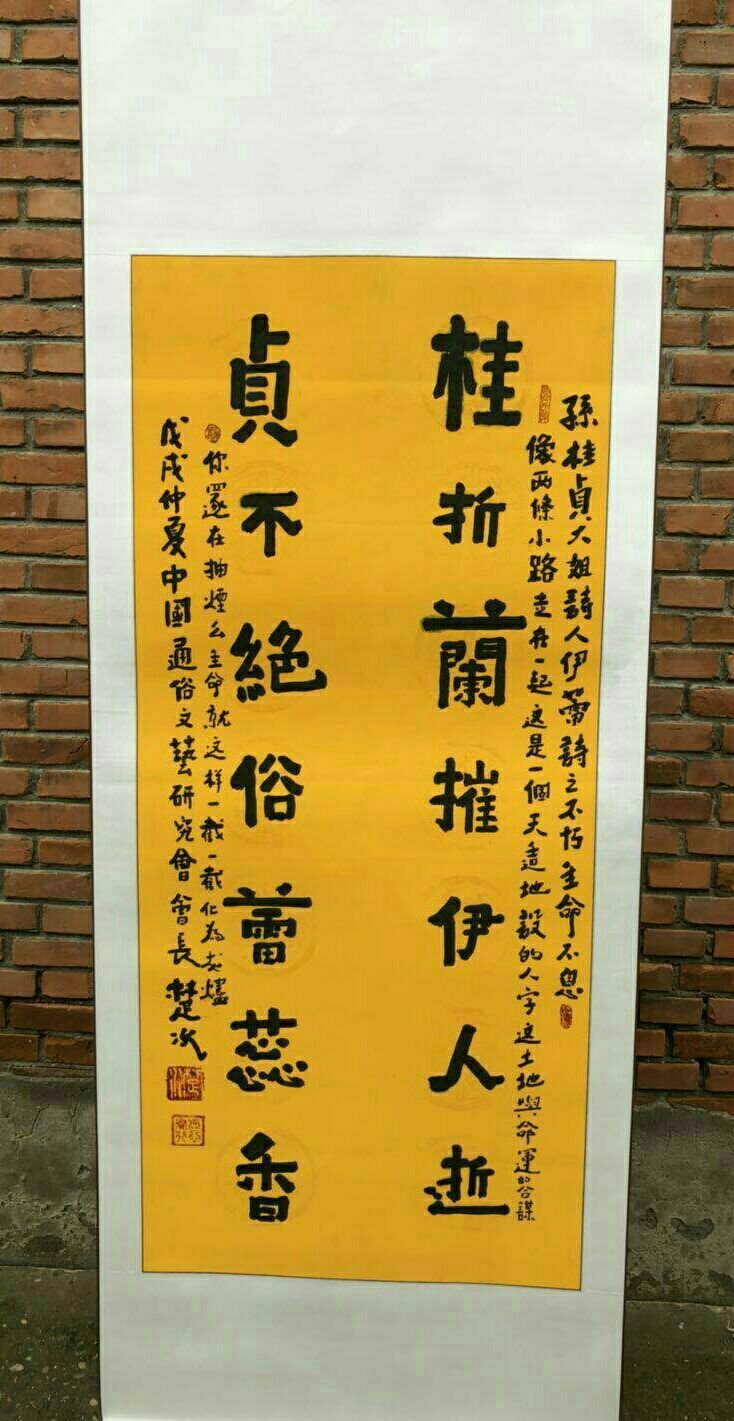 孫桂貞大姐詩人伊蕾詩之不朽生命不息
像兩條小路走在一起這是一個天造地設的人字這土地與命運的合謀
桂折蘭摧伊人逝
貞不絕俗蕾蕊香
你還在抽煙么生命就这样一截一截化為灰燼
戊戌仲夏中國通俗文藝研究會會長楚次